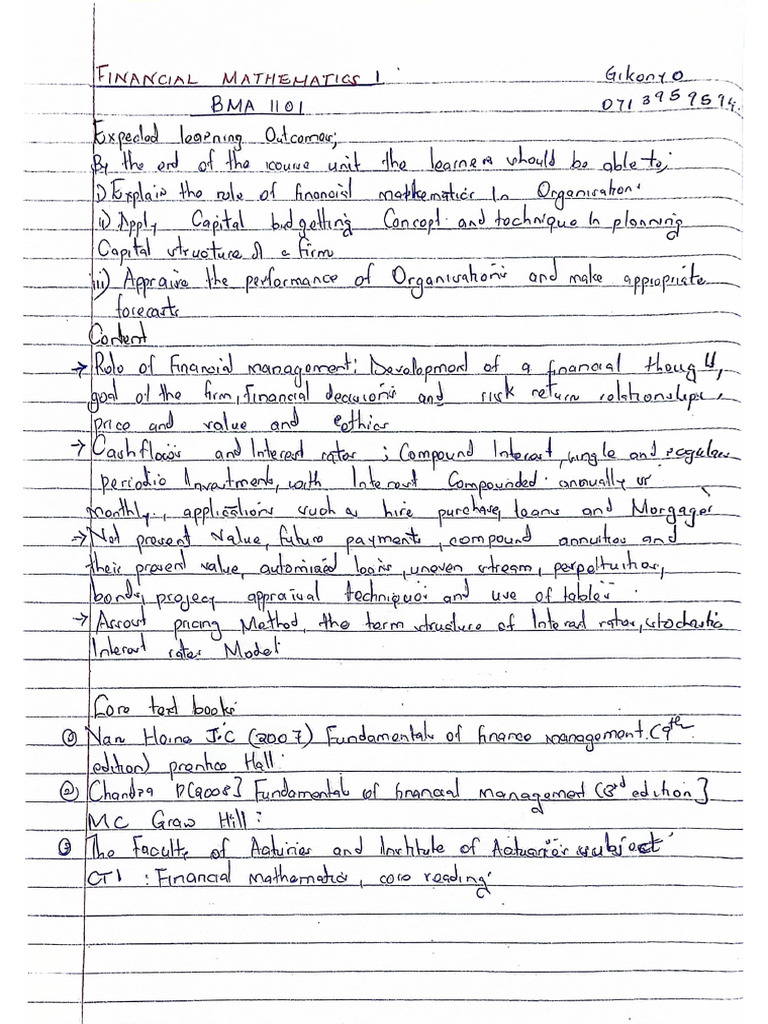 FINANCIAL MATHEMATICS 1 Gikonyo
BMA 1101 0713959594
Expected learning Outcomes;
By the end of the course unit the learners should be able to;
i) Explain the role of financial mathematics In Organisation.
ii) Apply Capital budgetting Concept and technique In planning
Capital structure of a firm
iii) Appraise the performance of Organisations and make appropriate
forecasts
Content
→ Role of Financial management: Development of a financial thought,
goal of the firm, financial decisions and risk return relationships,
price and value and ethics
→ Cashflows and Interest rates ; Compound Interest, single and regular
periodic Investments, with Interest Compounded annually or
monthly, applications such as hire purchase, loans and Morgages
→ Net present Value, future payments, compound annuities and
their present value, automized loans, uneven stream, perpetuities,
bonds, project appraisal techniques and use of tables.
→ Assest pricing Method, the term structure of Interest rates, stochastic
Interest rates Model
Core text books
① Van Horne J.C (2007) Fundamentals of finance management. (9th
edition) prentice Hall.
② Chandra P [2008] Fundamental of financial management (3rd edition]
MC Graw Hill:
③ The Faculty of Acturies and Institute of Actuaries subject
CT1 : Financial mathematics, core reading.